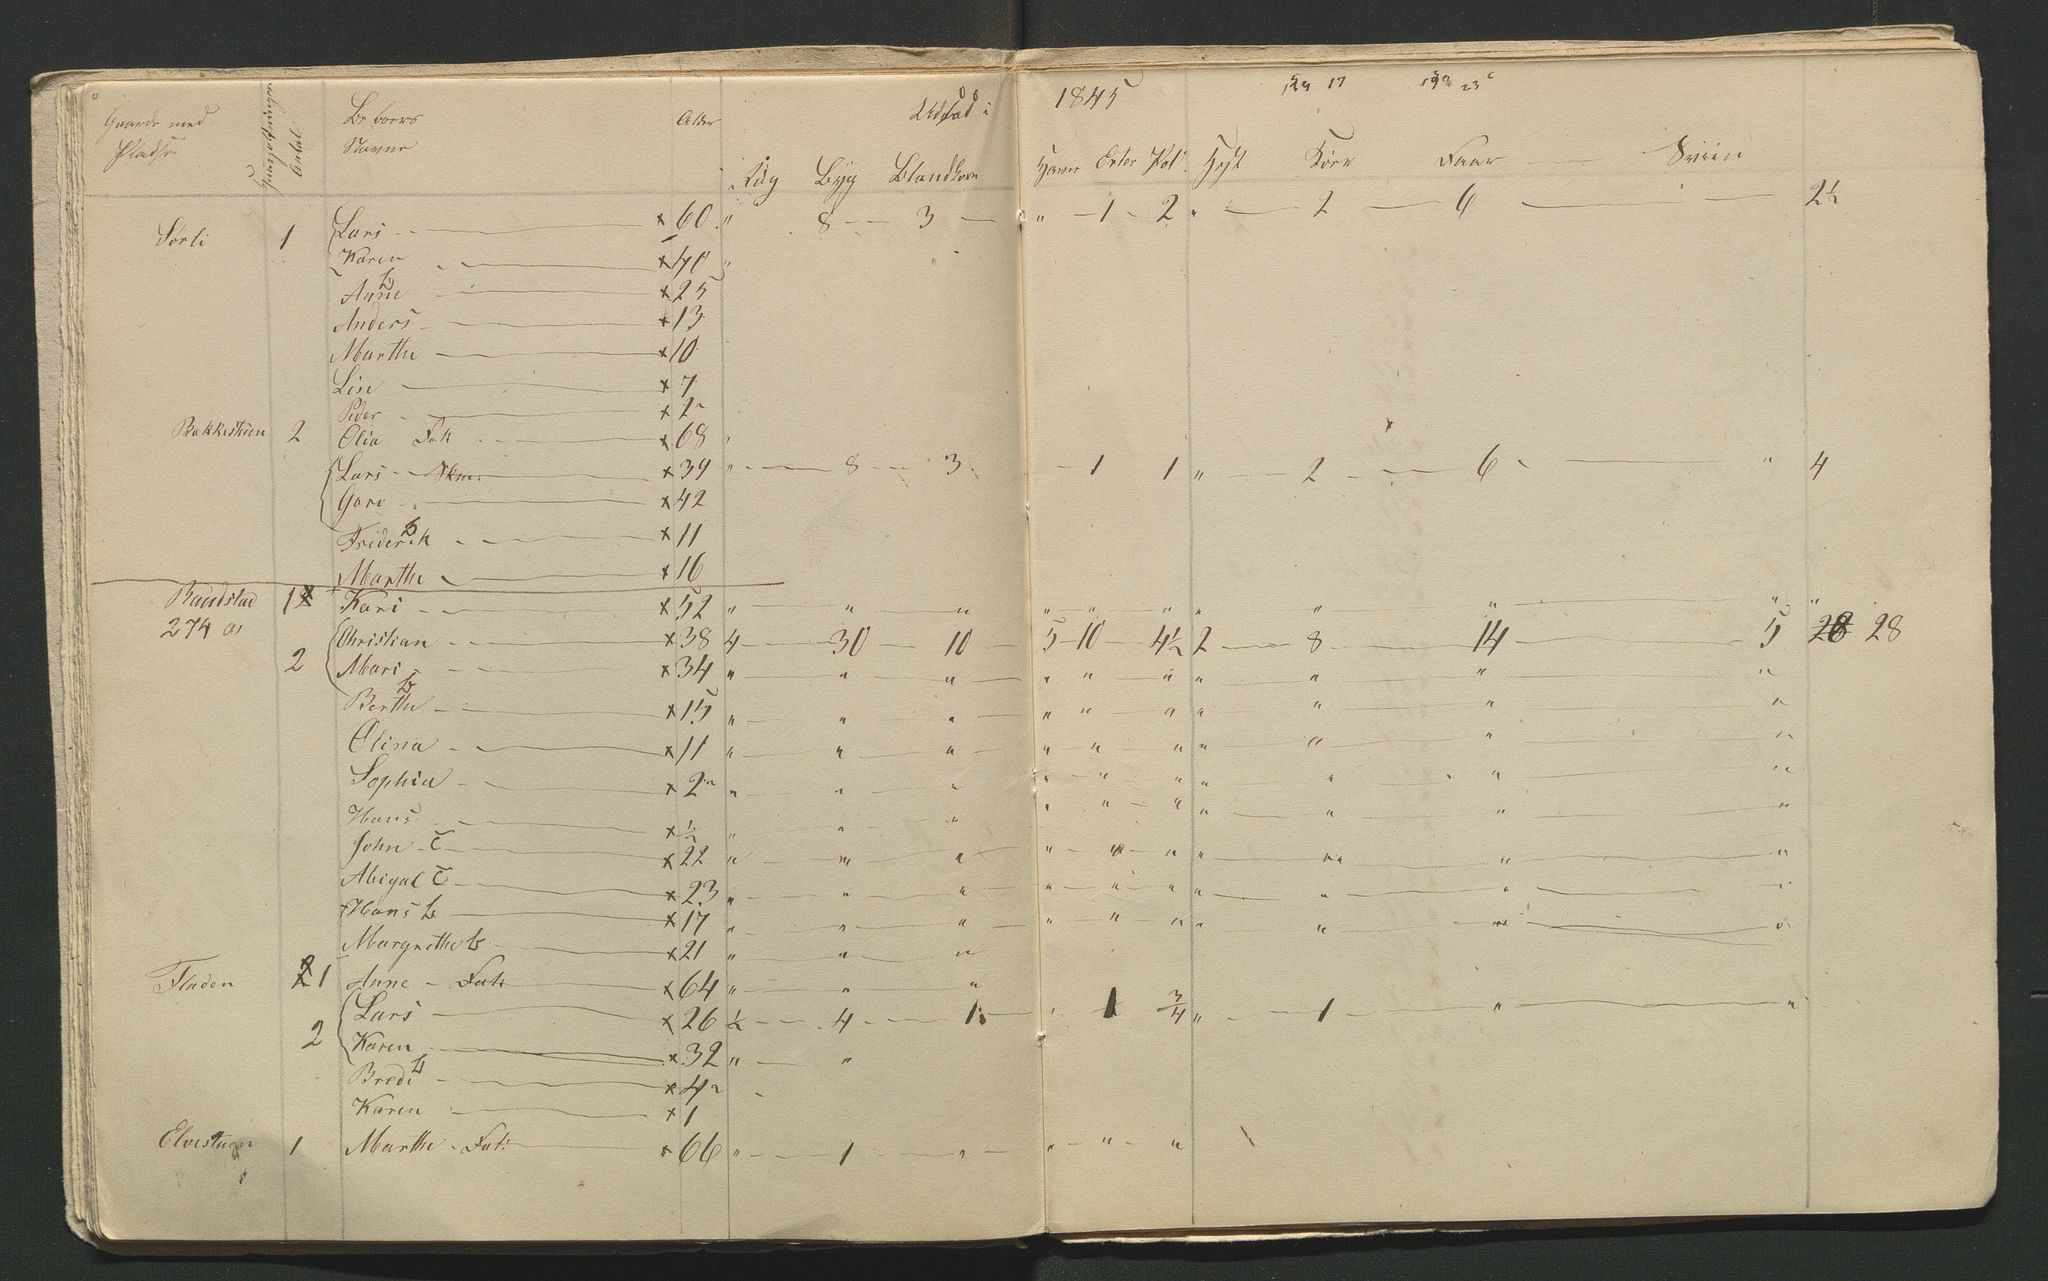 Gaarde med Pladse Huusholdninger Antal Beboers Navne Alder Udsæd i 1845
Rüg Byg Blandkorn Havre Erter Pot: Hest Kiør Faar Sviin
Sørli 1 Lars × 60 " 8 3 " 1 2 " 2 6 2½
Karen × 41 "
Anne b × 25
Anders × 13
Marthe × 10
Lise × 7
Peder × 2
Bakkestuen 2 Olia Fat × 68 "
Lars Skm: × 39 " 8 3 1 1 " 2 6 " 4
Goro × 42
Friderik b × 11
Marthe × 16
Raudstad 1 Kari × 52 " " " " " " " " " " "
274 Christian × 38 4 30 10 5 10 4½ 2 8 14 5 28 28
2 Mari × 34 " " " " " " " " " "
Berthe b × 15 " " " " " " " " " "
Olina × 11 " " " " " " " " " "
Sophia × 2 " " " " " " " " " "
Hans × ½ " " " " " " " " " "
John T × 22 " " " " " " " " " "
Abigal T × 23 " " " " " " " " " "
Hans b × 17 " " " " " " " " " "
Margrethe b × 21 " " "
Fladen 2 1 Anne Fat × 64 " " "
2 Lars × 26 ½ 4 1 " 1 ¾ " 1 " "
Karen × 32 " "
Brede b × 4
Karen × 1
Elvestuen 1 Marthe Fat: × 66 " 1 " " " "